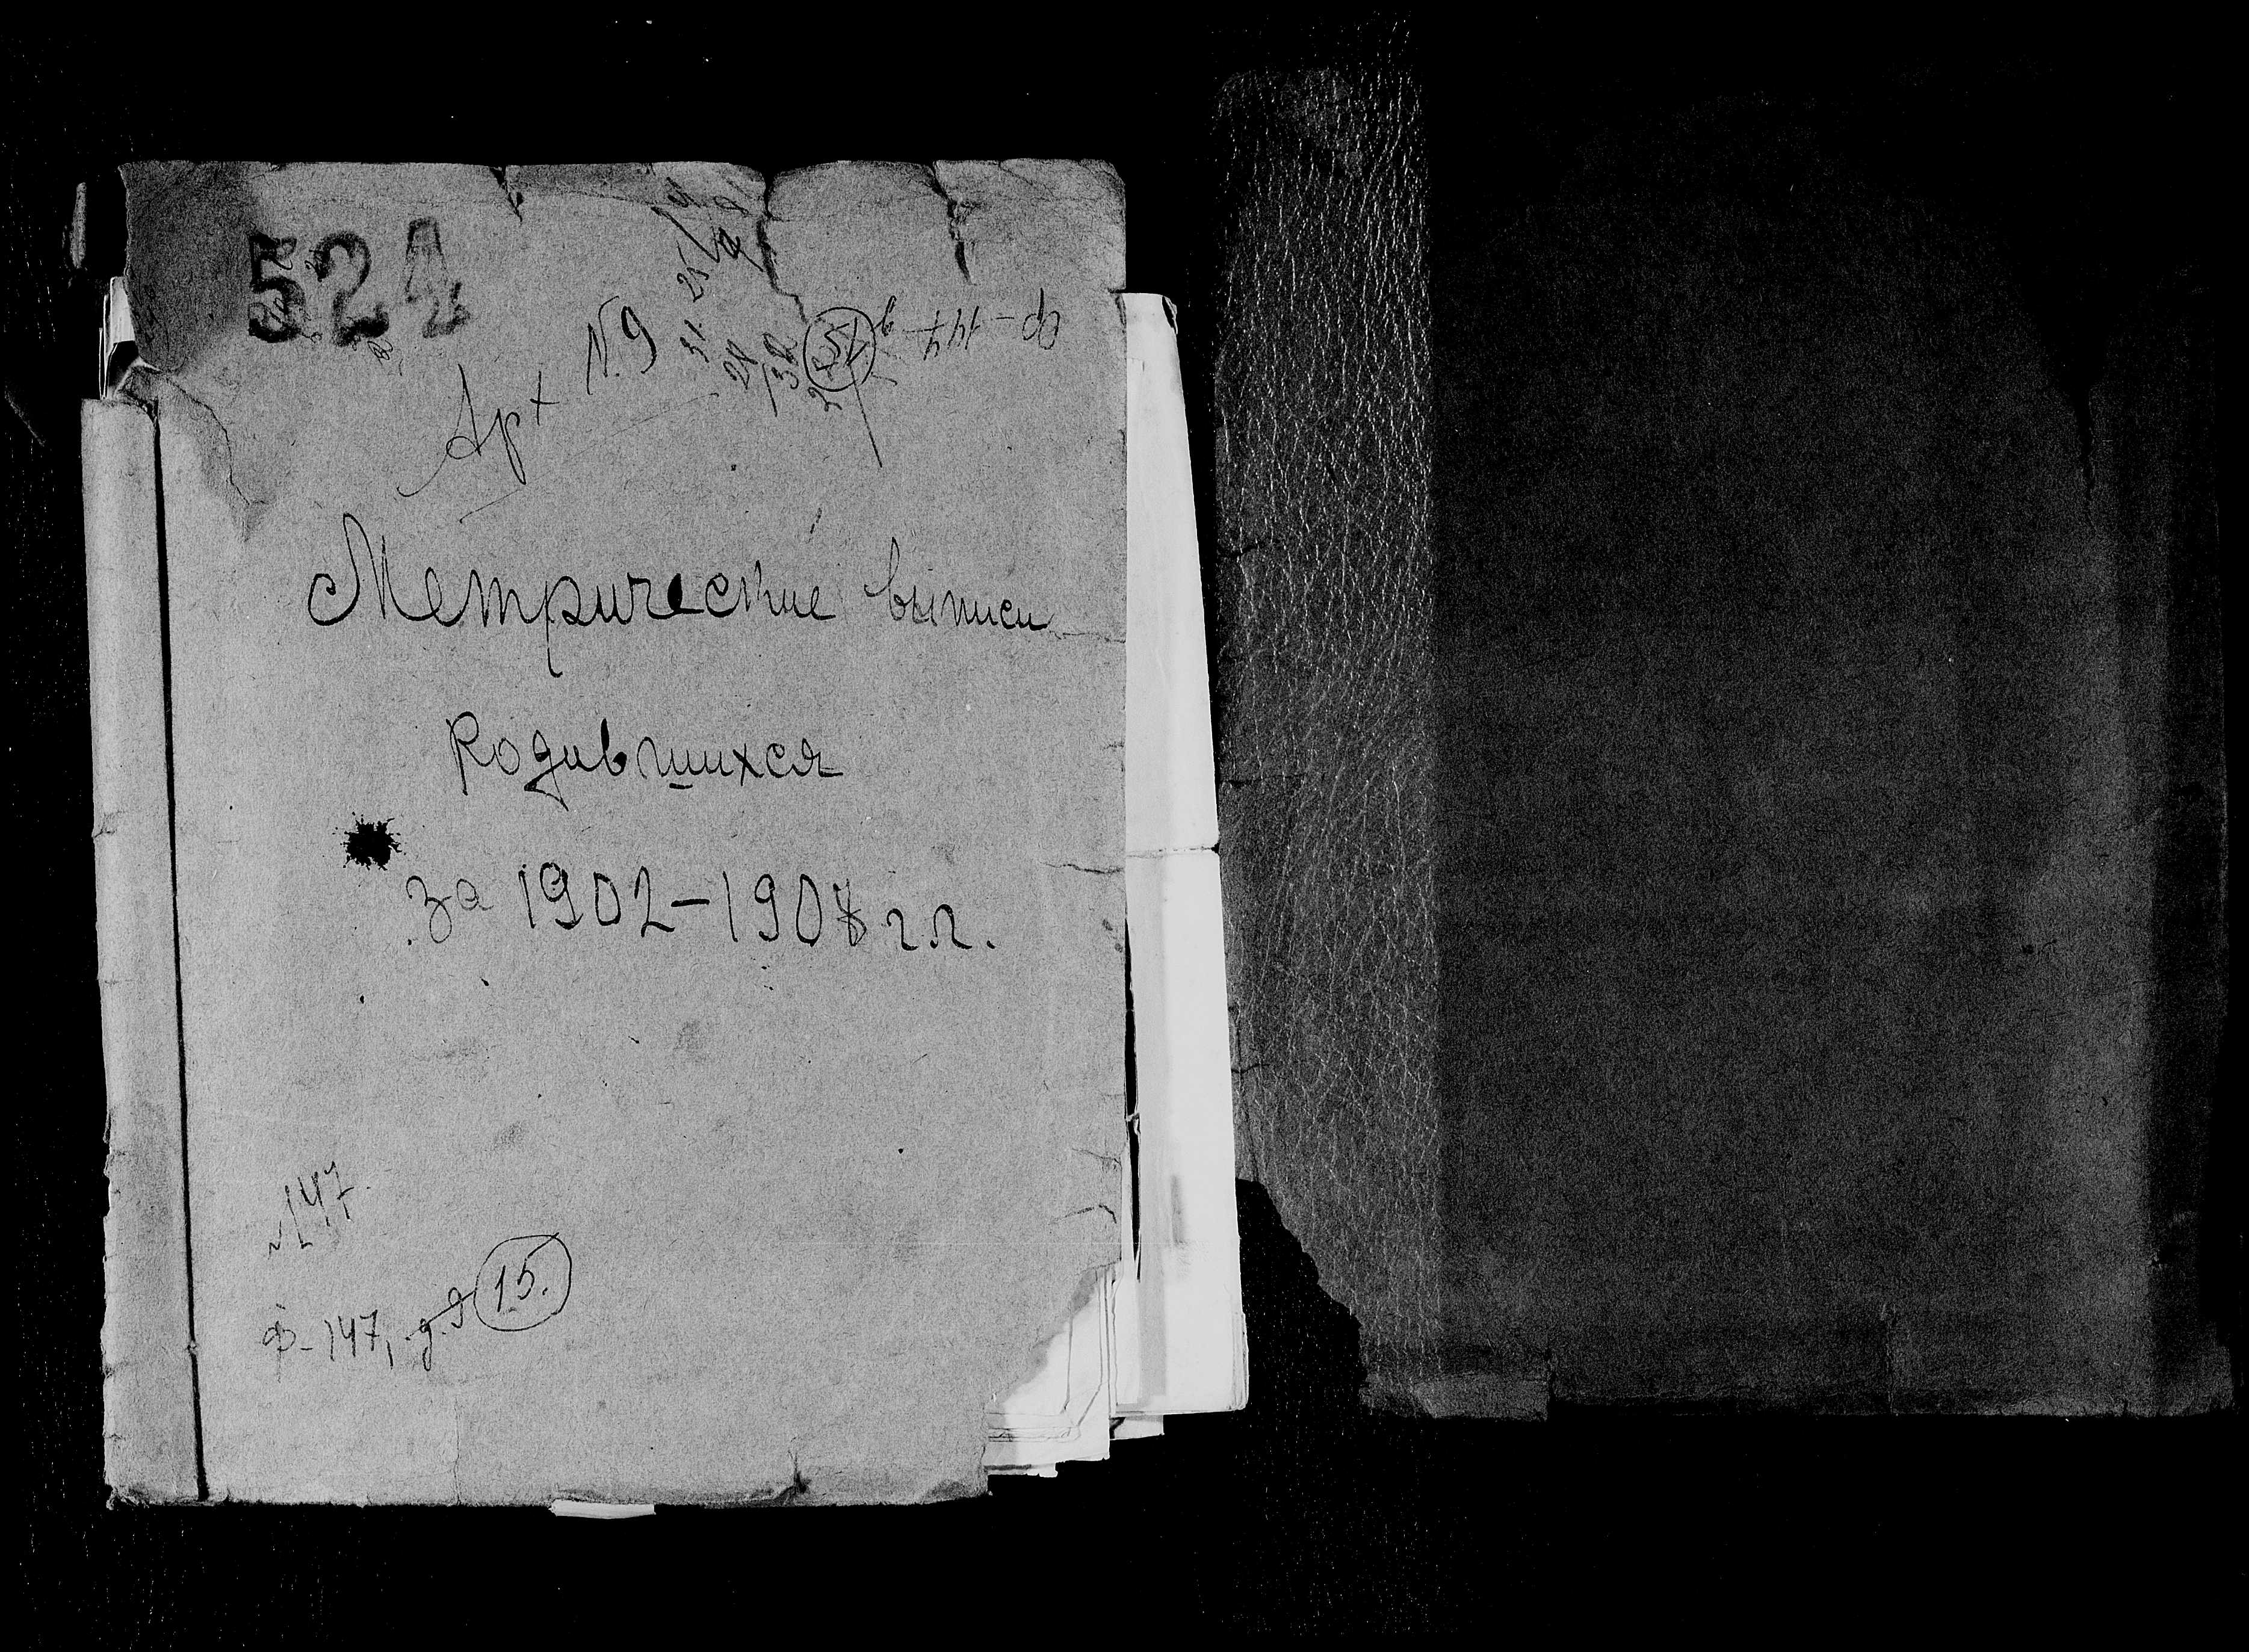 524
Арх N.9
Метрические выписи
Родившихся
за 1902-1908 г.г.
N 147.
ф-147, д.9 15.